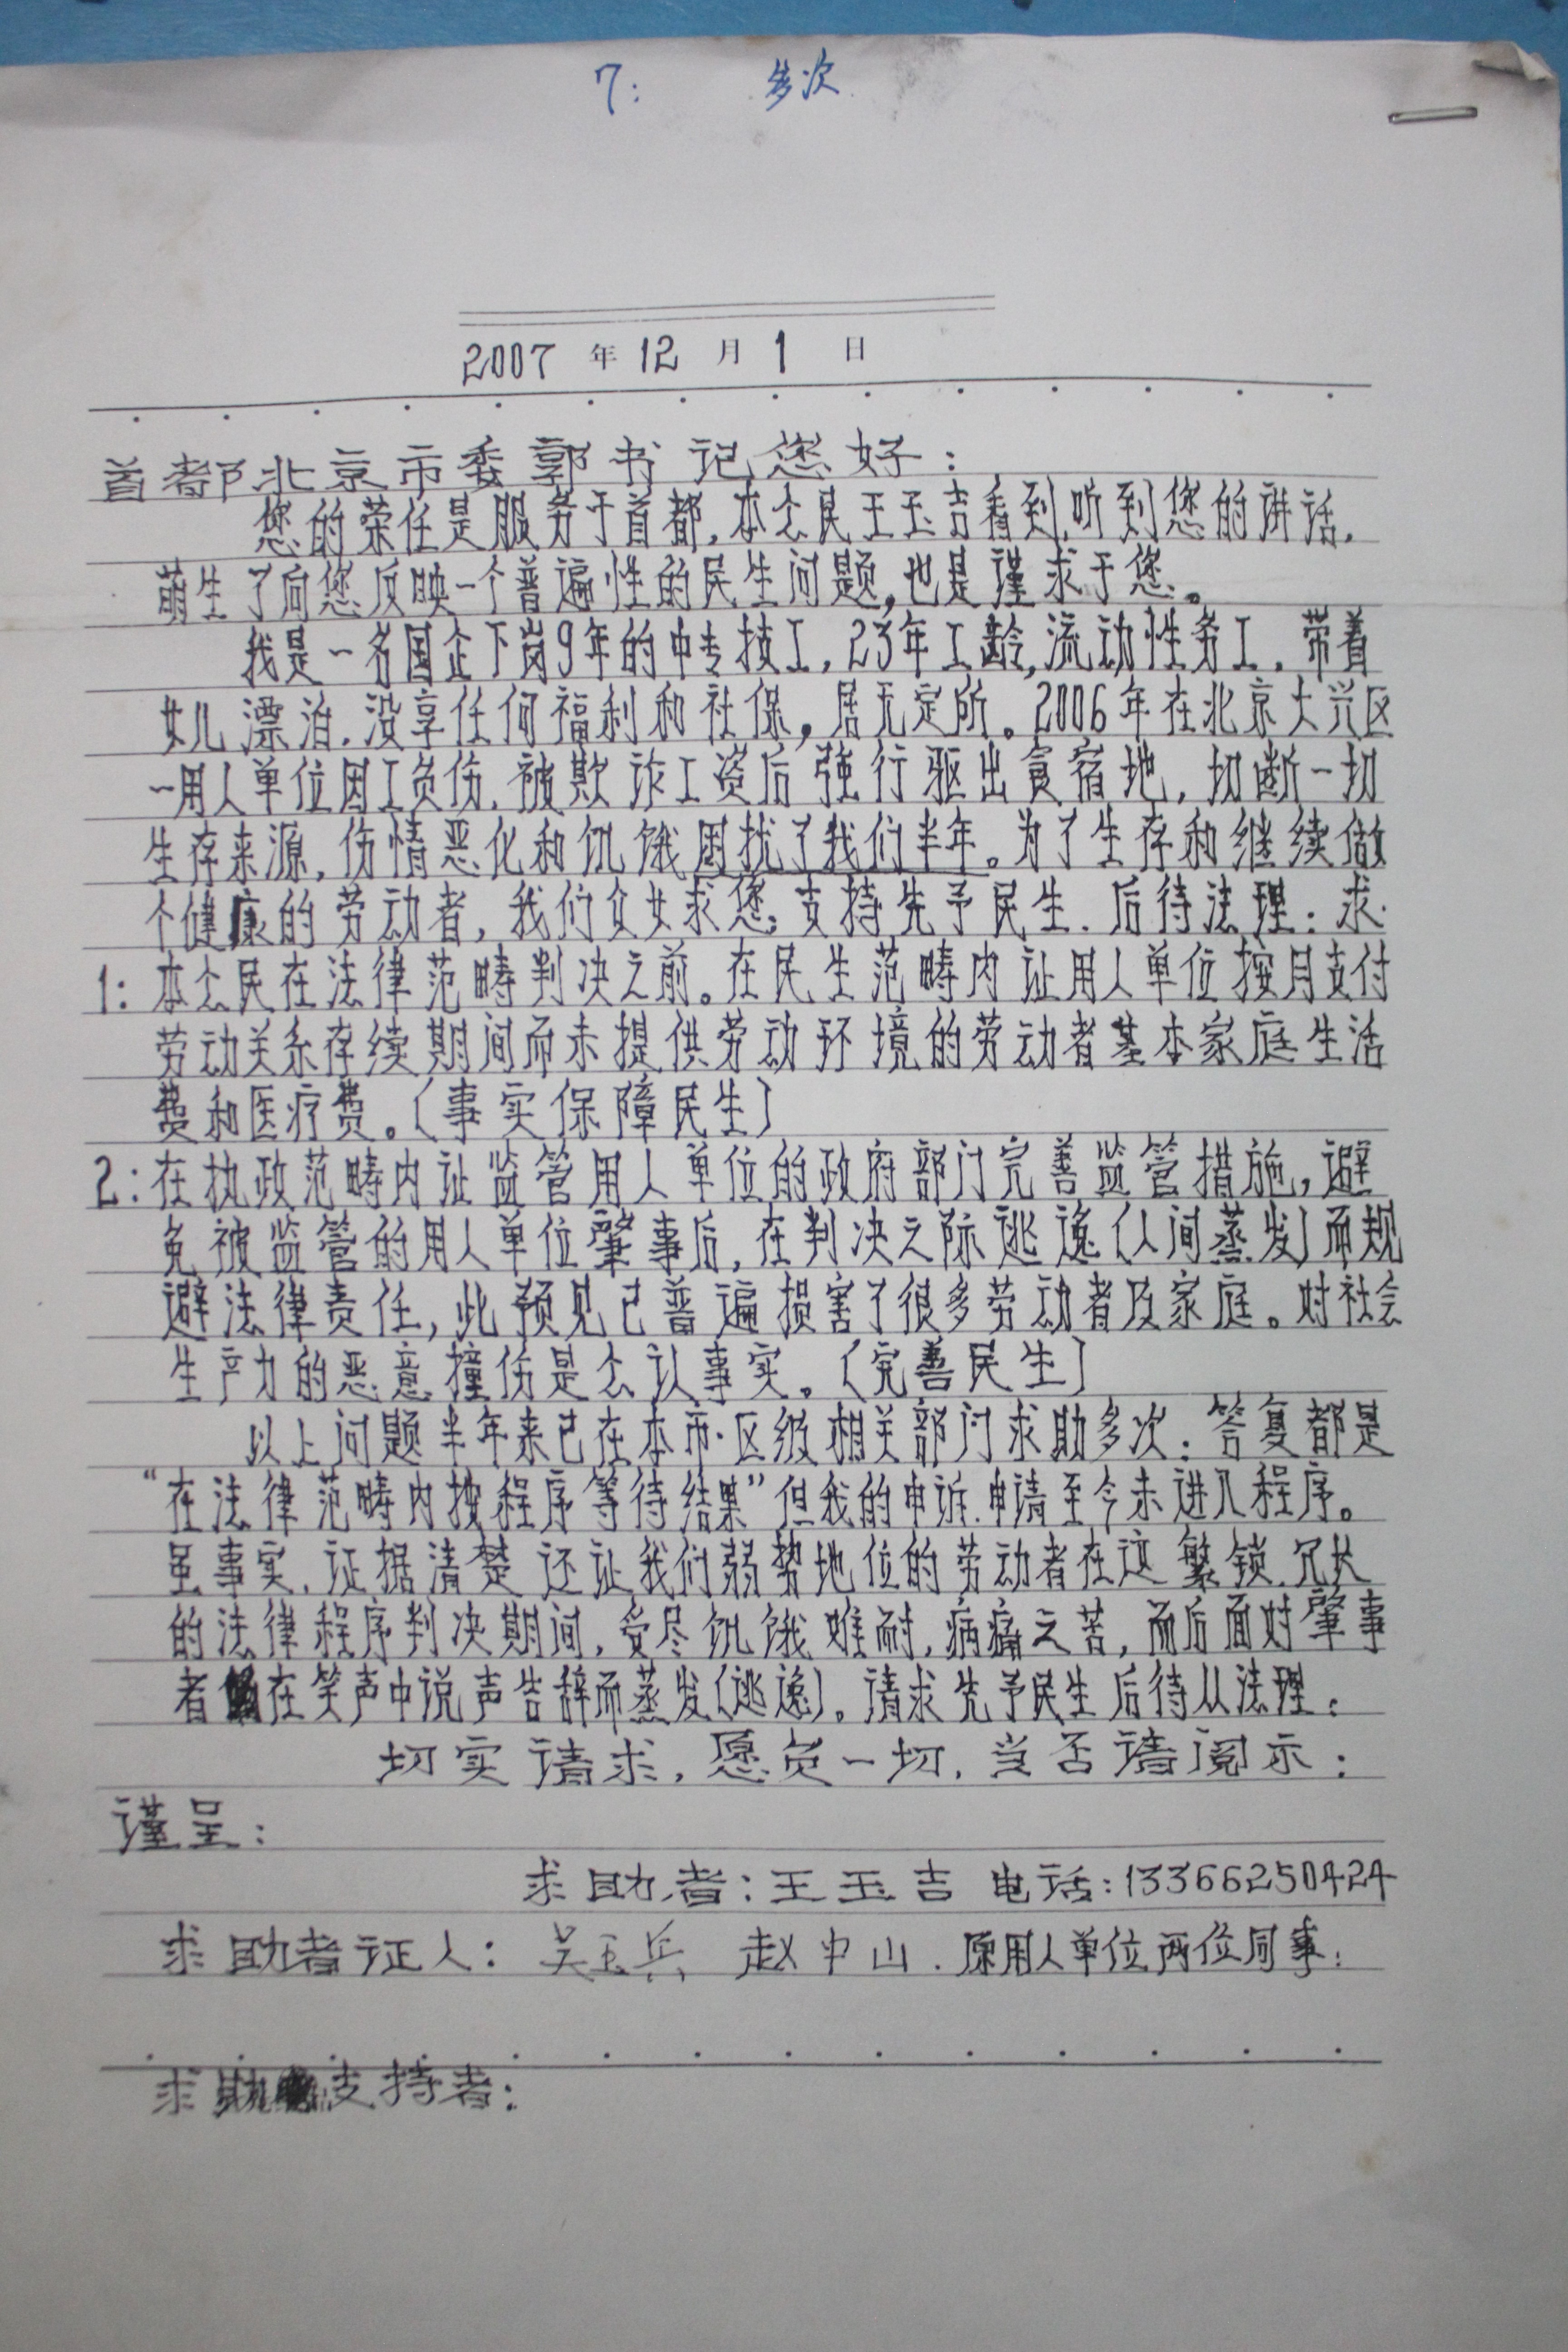 7: 多次
2007 年 12 月 1 日
首都北京市委郭书记您好：
您的荣任是服务于首都,本公民王玉吉看到,听到您的讲话,
萌生了向您反映一个普遍性的民生问题,也是谨求于您。
我是一名国企下岗9年的中专技工,23年工龄,流动性务工,带着
女儿漂泊,没享任何福利和社保,居无定所。2006年在北京大兴区
一用人单位因工负伤,被欺诈工资后强行驱出食宿地,切断一切
生存来源,伤情恶化和饥饿困扰了我们半年。为了生存和继续做
个健康的劳动者,我们父女求您:支持先予民生.后待法理:求.
1: 本公民在法律范畴判决之前。在民生范畴内让用人单位按月支付
劳动关系存续期间而未提供劳动环境的劳动者基本家庭生活
费和医疗费。(事实保障民生)
2: 在执政范畴内让监管用人单位的政府部门完善监管措施,避
免被监管的用人单位肇事后,在判决之际逃逸(人间蒸发)而规
避法律责任,此预见已普遍损害了很多劳动者及家庭。对社会
生产力的恶意撞伤是公认事实。(完善民生)
以上问题半年来已在本市.区级相关部门求助多次:答复都是
“在法律范畴内按程序等待结果”但我的申诉.申请至今未进入程序。
虽事实,证据清楚还让我们弱势地位的劳动者在这繁锁.冗长
的法律程序判决期间,受尽饥饿难耐,病痛之苦,而后面对肇事
者在笑声中说声告辞而蒸发(逃逸)。请求先予民生后待从法理:
切实请求,愿负一切,当否请阅示:
谨呈:
求助者:王玉吉 电话:13366250424
求助者证人: 吴玉兵 赵中山.原用人单位两位同事:
求助支持者: